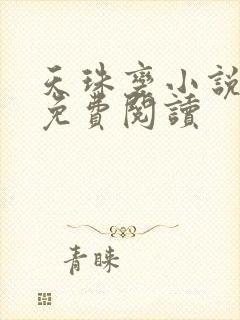 天珠變小說
免費閱讀
青睞